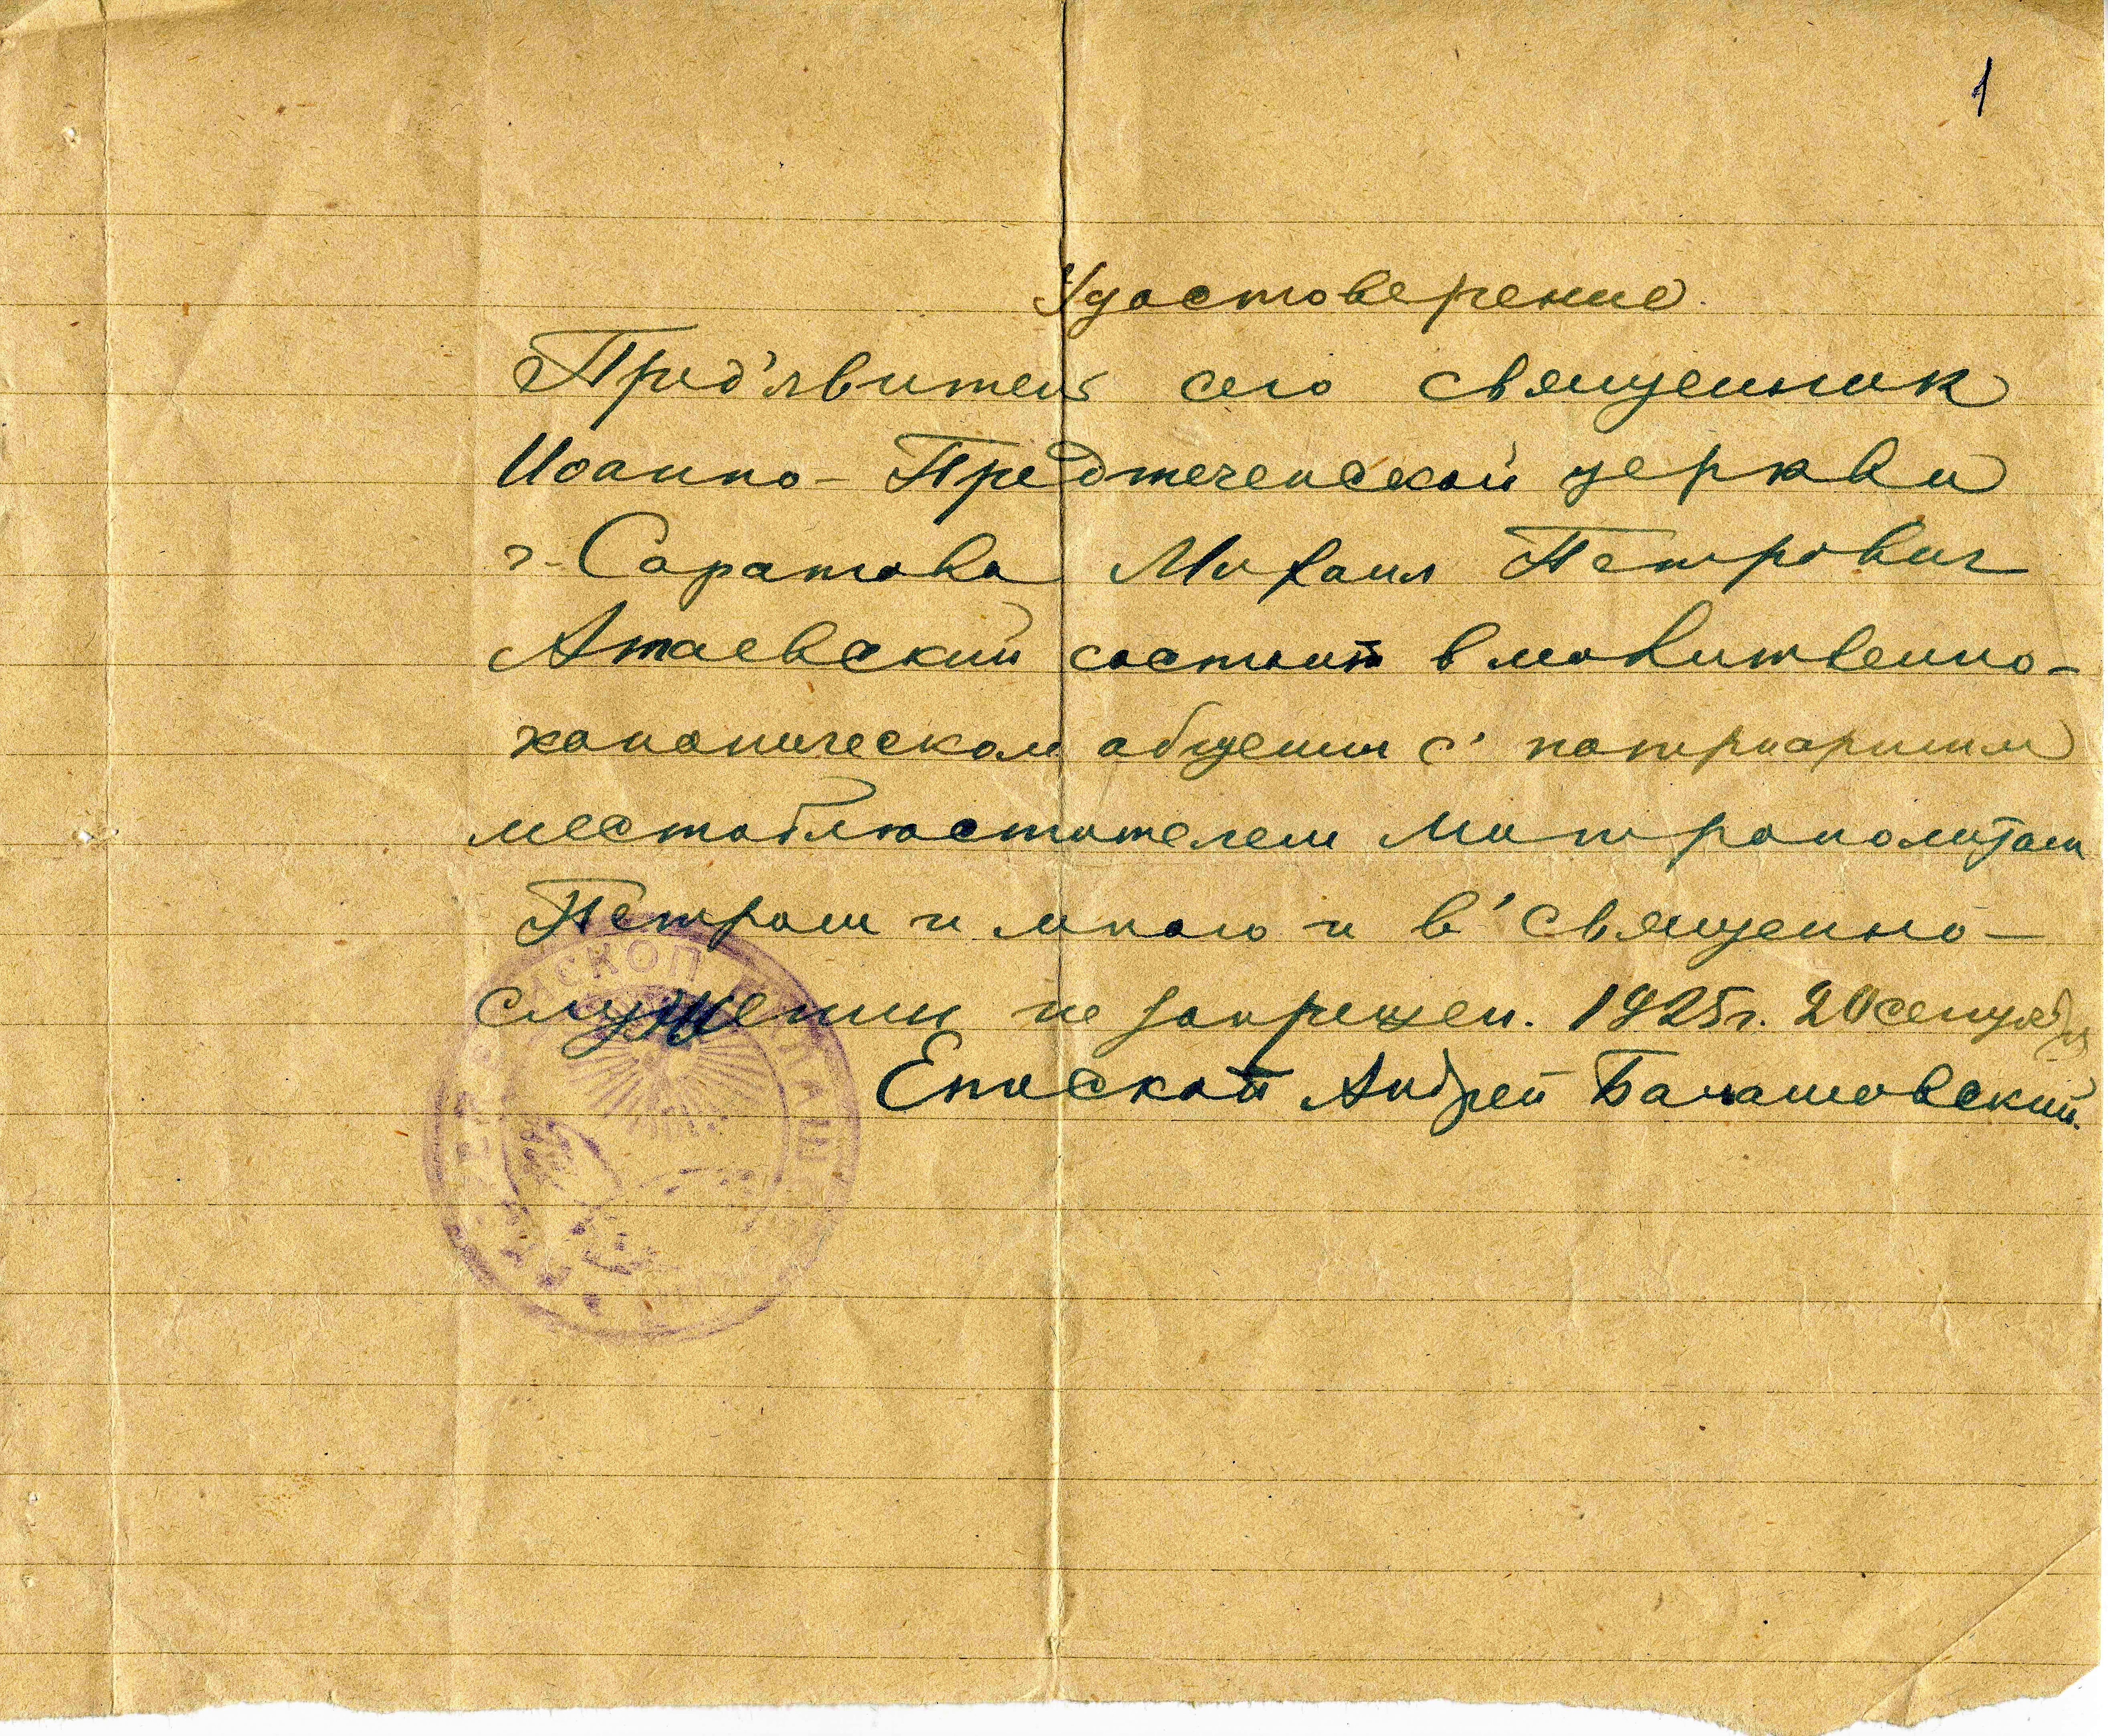 1
Удостоверение.
Пред'явитель сего священник
Иоанно-Предтеченской церкви
г. Саратова Михаил Петрович
Атаевский состоит в молитвенно-
каноническом общении с' патриаршим
местоблюстителем Митрополитом
Петром и мною и в' священно-
служении не запрещен. 1925 г. 20 сентября
Епископ Андрей Балашовский.
ЕПИСКОП БАЛАШОВ